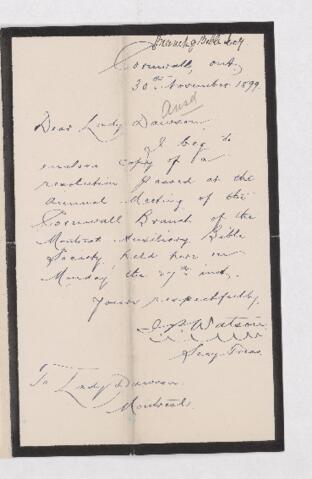 Branch of Bible Socy
Cornwall, Ont,
30th November 1899.
Ansd
Dear Lady Dawson,
I beg to
enclose copy of a
resolution passed at the
Annual Meeting of the
Cornwall Branch of the
Montreal Auxiliary Bible
Society, held here on
Monday the 27th inst.
Yours respectfully,
Watson
Secy. Treas.
To Lady Dawson
Montreal.